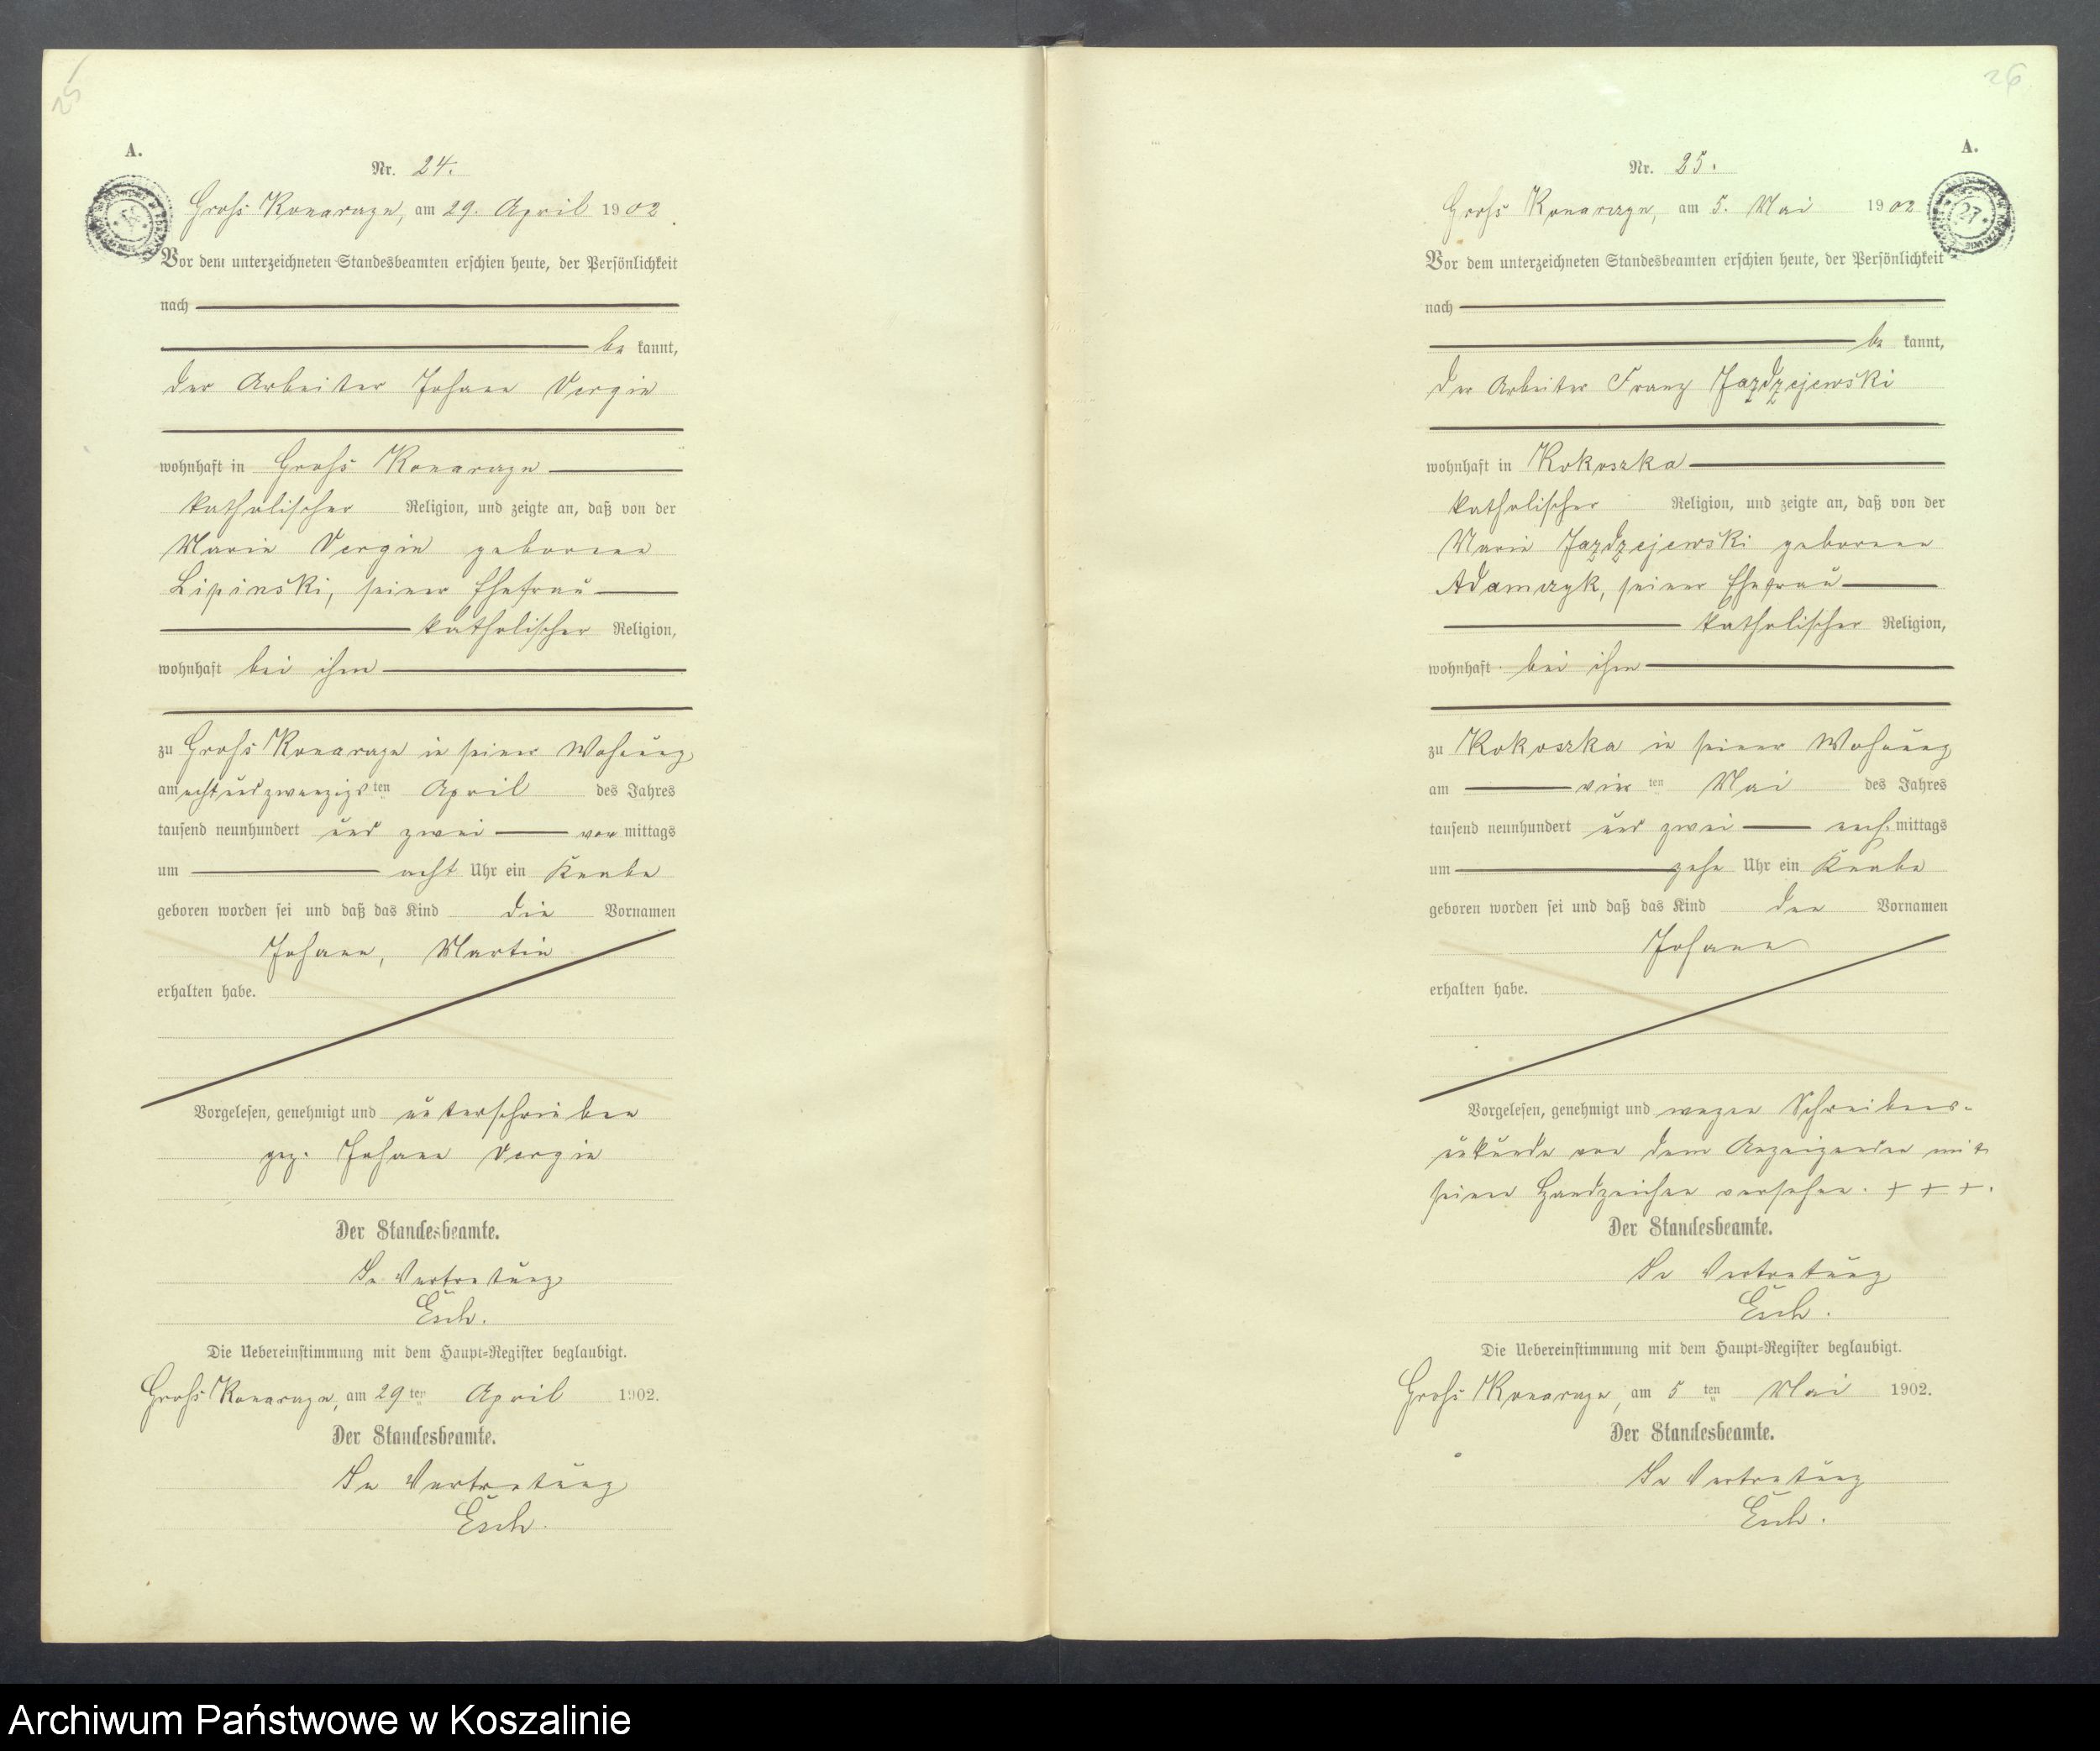 25
A.
Nr. 24.
Groß Konarczyn, am 29. April 1902
Vor dem unterzeichneten Standesbeamten erschien heute, der Persönlichkeit
nach
be kannt,
der Arbeiter Johann Vergin
wohnhaft in Groß Konarczyn
katholischer Religion, und zeigte an, daß von der
Marie Vergin geborenen
Lipinski, seiner Ehefrau
katholischer Religion,
wohnhaft bei ihm
zu Groß Konarczyn in seiner Wohnung
am achtundzwanzigsten April des Jahres
tausend neunhundert und zwei vor mittags
um acht Uhr ein Knabe
geboren worden sei und daß das Kind die Vornamen
Johann, Martin
erhalten habe.
Vorgelesen, genehmigt und unterschrieben
gez. Johann Vergin
Der Standesbeamte.
In Vertretung
Esch.
Die Uebereinstimmung mit dem Haupt-Register beglaubigt.
Groß Konarczyn, am 29 ten April 1902.
Der Standesbeamte.
In Vertretung
Esch.
26
A.
Nr. 25.
27
Groß Konarczyn, am 5. Mai 1902
Vor dem unterzeichneten Standesbeamten erschien heute, der Persönlichkeit
nach
be kannt,
der Arbeiter Franz Jazdzejewski
wohnhaft in Kokoszka
katholischer Religion, und zeigte an, daß von der
Marie Jazdzejewski geborenen
Adamczyk, seiner Ehefrau
katholischer Religion,
wohnhaft bei ihm
zu Kokoszka in seiner Wohnung
am vier ten Mai des Jahres
tausend neunhundert und zwei nach mittags
um zehn Uhr ein Knabe
geboren worden sei und daß das Kind den Vornamen
Johann
erhalten habe.
Vorgelesen, genehmigt und wegen Schreibens-
unkunde von dem Anzeigenden mit
seinem Handzeichen versehen. + + +.
Der Standesbeamte.
In Vertretung
Esch.
Die Uebereinstimmung mit dem Haupt-Register beglaubigt.
Groß Konarczyn, am 5 ten Mai 1902.
Der Standesbeamte.
In Vertretung
Esch.
Archiwum Państwowe w Koszalinie